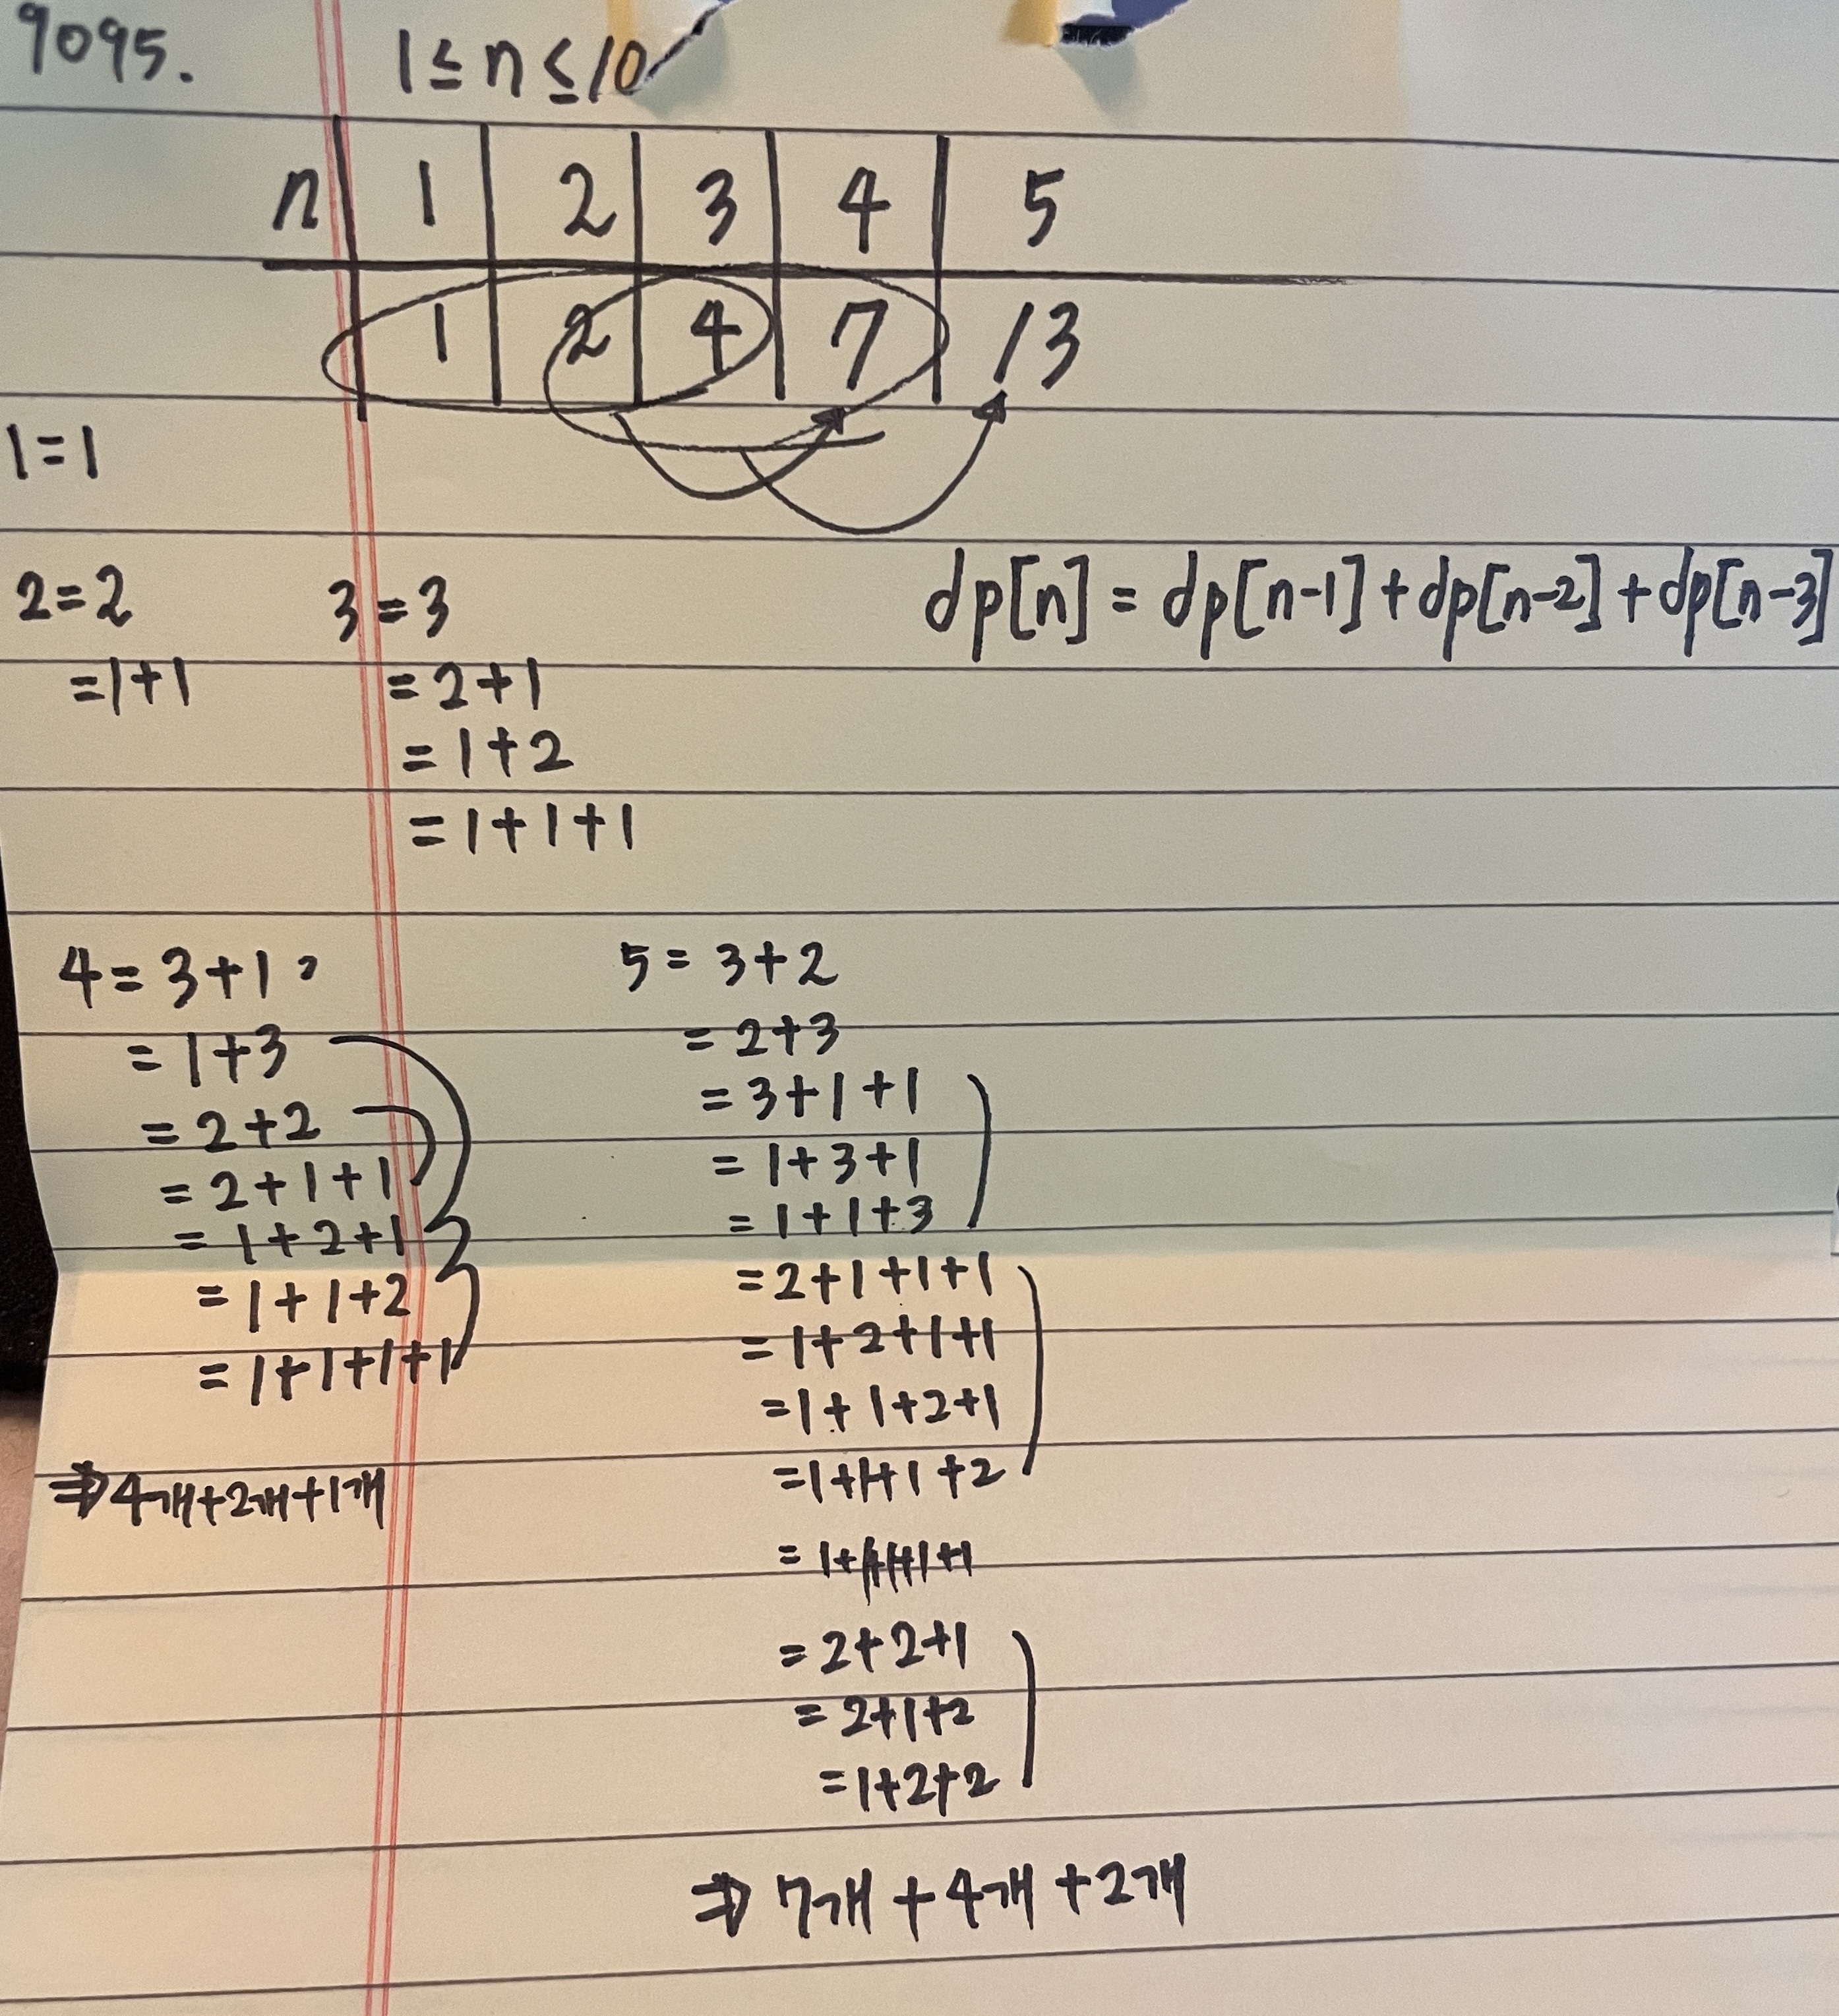 9095.
1≤n≤10
n 1 2 3 4 5
1 2 4 7 13
1=1
dp[n] = dp[n-1]+dp[n-2]+dp[n-3]
2=2
=1+1
3=3
=2+1
=1+2
=1+1+1
4=3+1
=1+3
=2+2
=2+1+1
=1+2+1
=1+1+2
=1+1+1+1
⇒4개+2개+1개
5=3+2
=2+3
=3+1+1
=1+3+1
=1+1+3
=2+1+1+1
=1+2+1+1
=1+1+2+1
=1+1+1+2
=1+1+1+1+1
=2+2+1
=2+1+2
=1+2+2
⇒7개+4개+2개